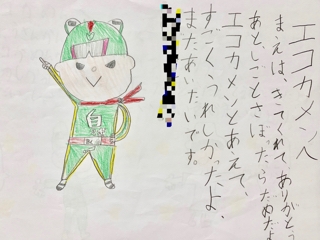 エコカメンへ
まえは、きてくれてありがとう
あと、しごとさぼったらだめだよ
エコカメンとあえて、
すごくうれしかったよ、
またあいたいです。
白